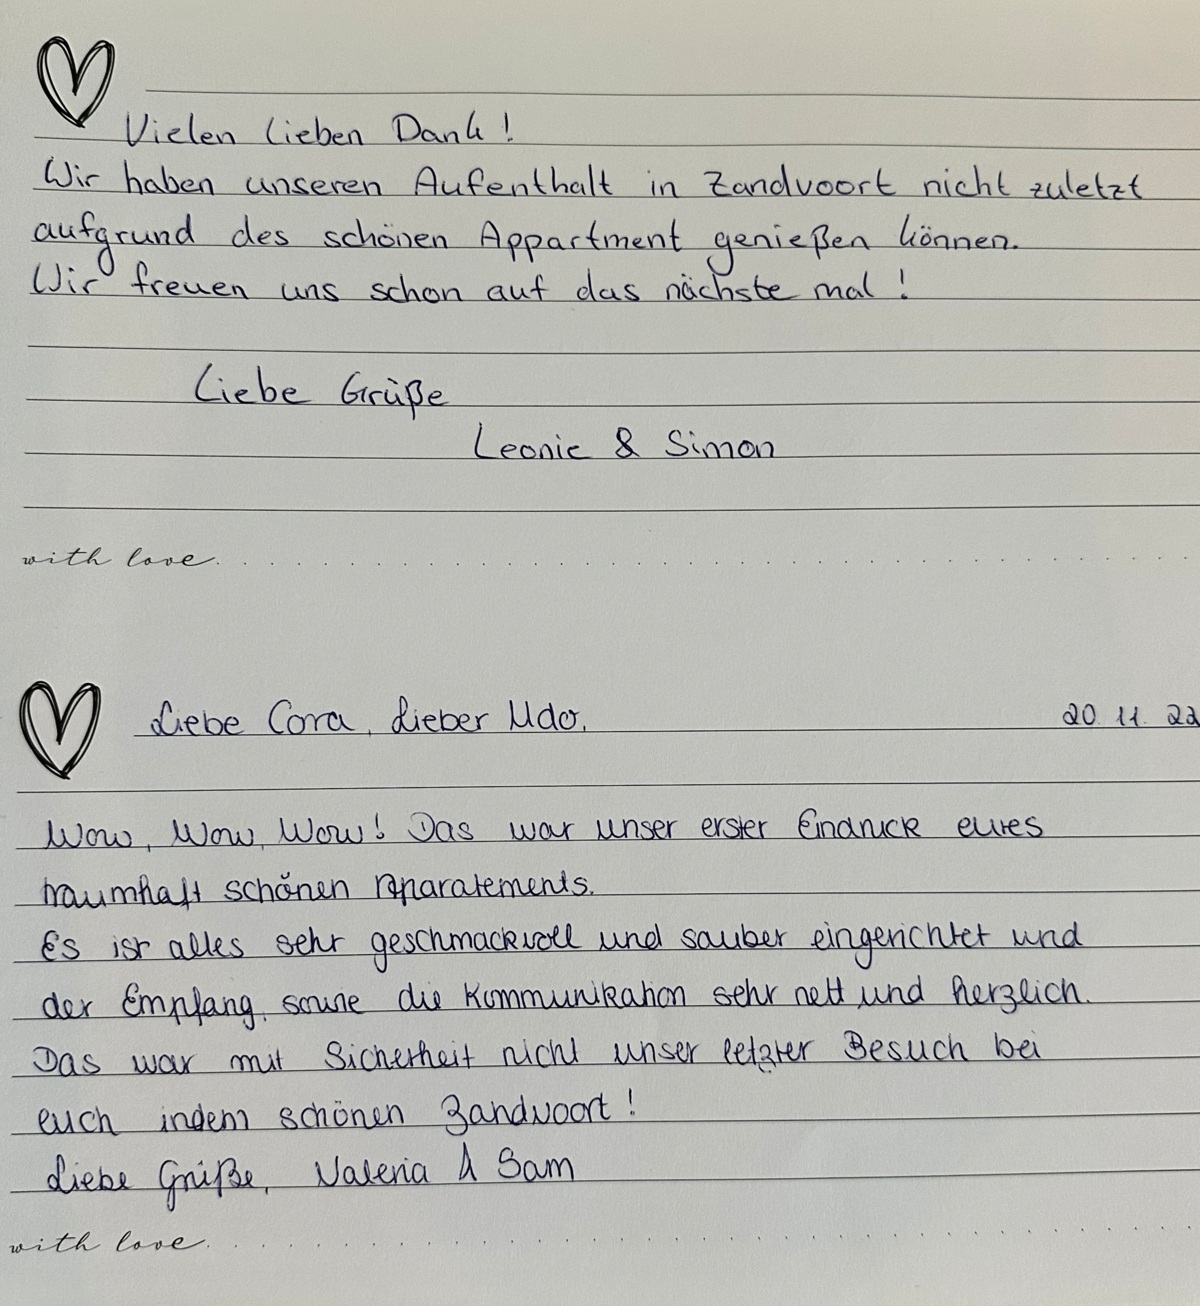 Vielen lieben Dank!
Wir haben unseren Aufenthalt in Zandvoort nicht zuletzt
aufgrund des schönen Appartment genießen können.
Wir freuen uns schon auf das nächste mal!
Liebe Grüße
Leonie & Simon
with love
Liebe Cora, Lieber Udo, 20.11.22
Wow, Wow, Wow! Das war unser erster Eindruck eures
traumhaft schönen Aparatements.
Es ist alles sehr geschmackvoll und sauber eingerichtet und
der Empfang, sowie die Kommunikation sehr nett und herzlich.
Das war mit Sicherheit nicht unser letzter Besuch bei
euch indem schönen Zandvoort!
Liebe Grüße, Valeria & Sam
with love